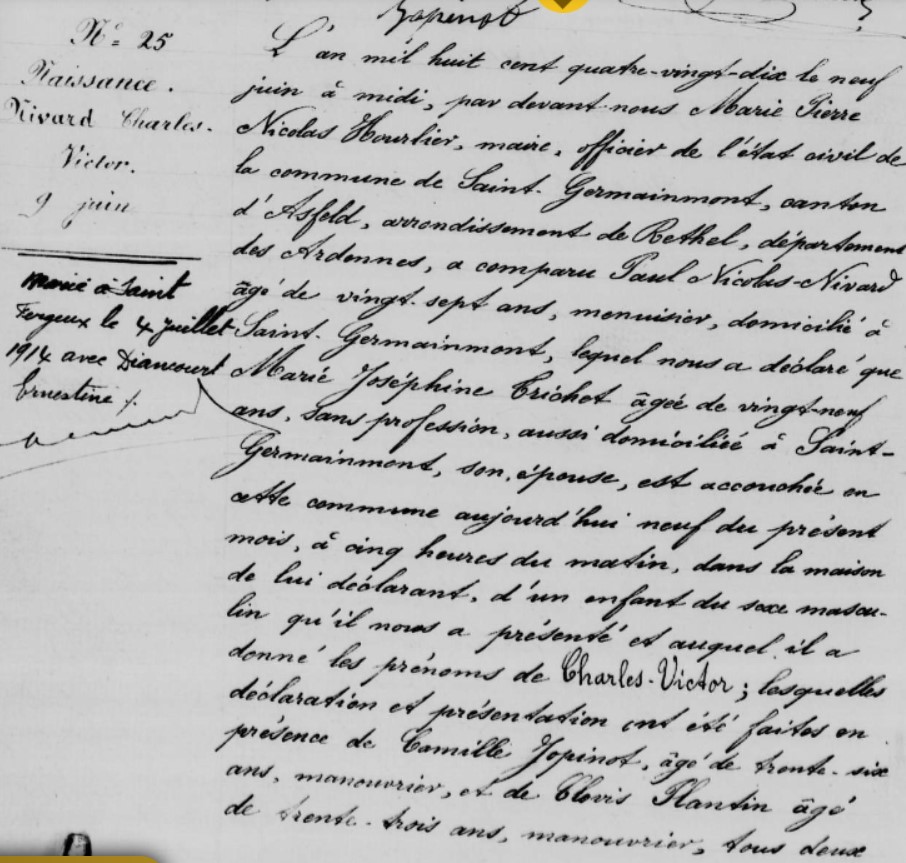 Jopinot
N° 25
Naissance.
Nivard Charles-
Victor.
9 juin
marié à Saint
Fergeux le 4 juillet
1914 avec Diancourt
Ernestine ./.
L'an mil huit cent quatre-vingt-dix le neuf
juin à midi, par devant nous Marie Pierre
Nicolas Hourlier, maire, officier de l'état civil de
la commune de Saint-Germainmont, canton
d'Asfeld, arrondissement de Rethel, département
des Ardennes, a comparu Paul Nicolas-Nivard
âgé de vingt-sept ans, menuisier, domicilié à
Saint-Germainmont, lequel nous a déclaré que
Marie Joséphine Trichet âgée de vingt-neuf
ans, sans profession, aussi domiciliée à Saint-
Germainmont, son épouse, est accouchée en
cette commune aujourd'hui neuf du présent
mois, à cinq heures du matin, dans la maison
de lui déclarant, d'un enfant du sexe mascu-
lin qu'il nous a présenté et auquel il a
donné les prénoms de Charles-Victor ; lesquelles
déclaration et présentation ont été faites en
présence de Camille Jopinot, âgé de trente-six
ans, manouvrier, et de Clovis Plantin âgé
de trente-trois ans, manouvrier, tous deux